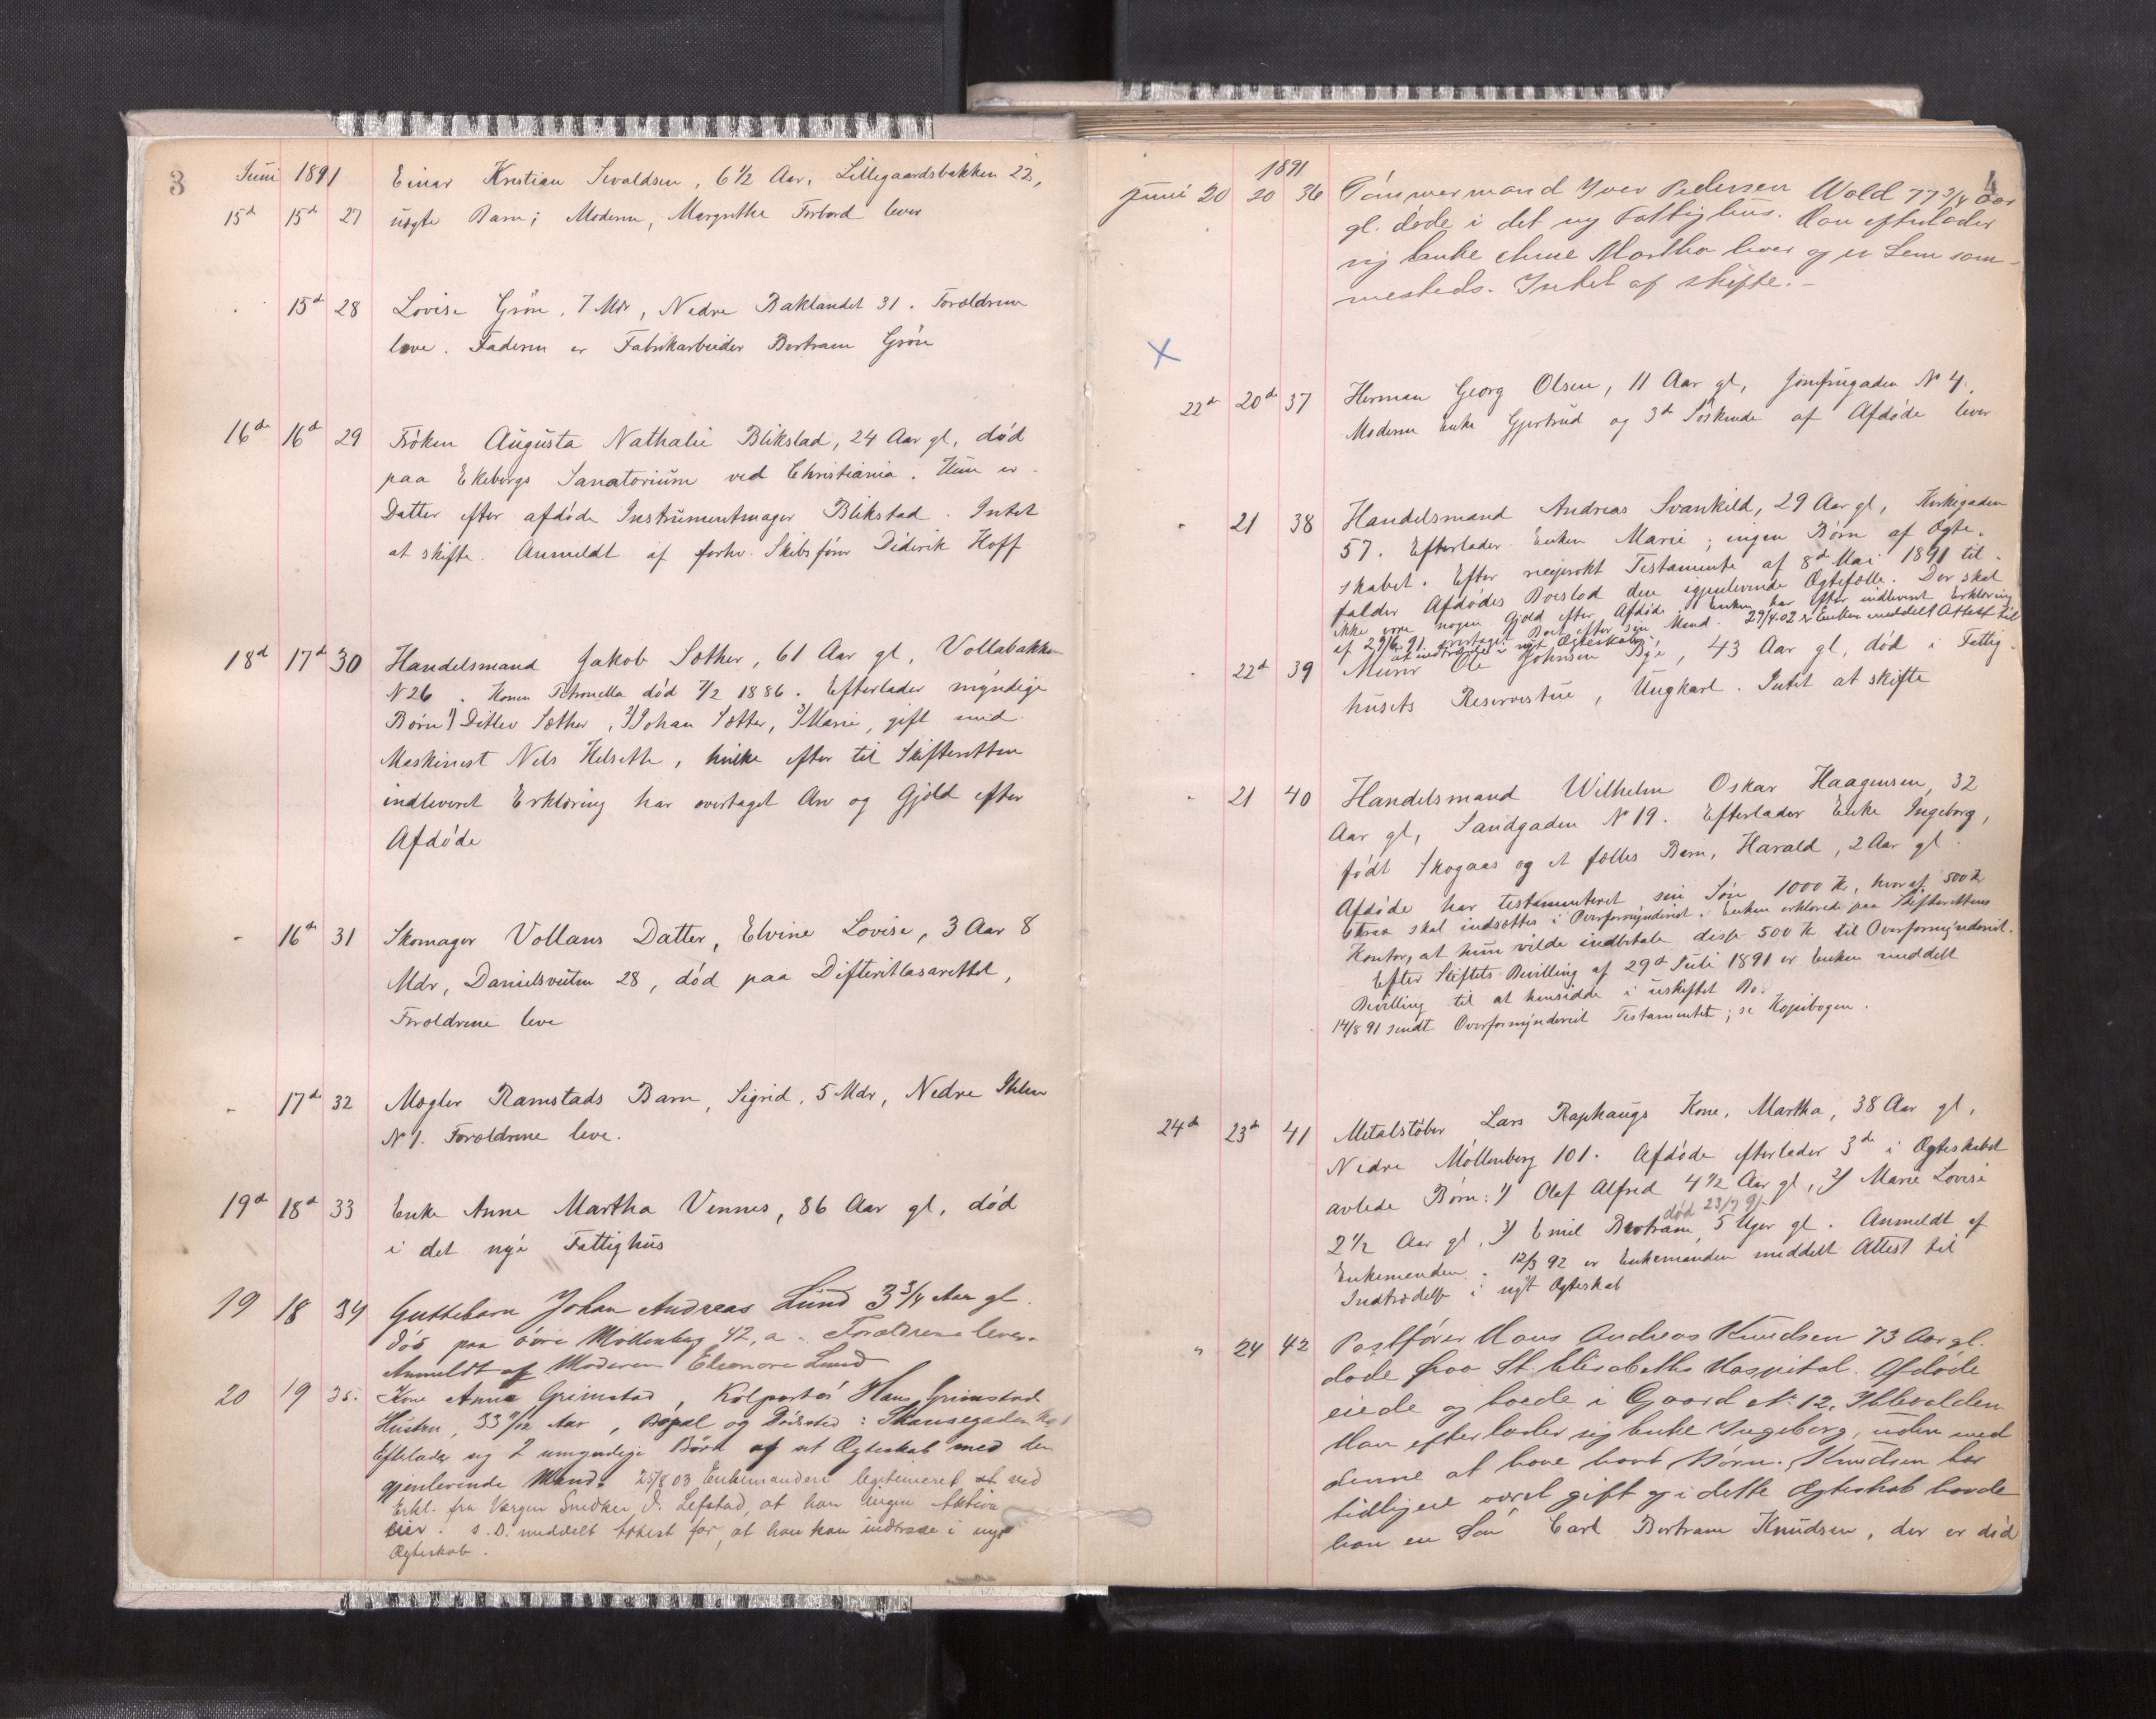 3
Juni 1891 Einar Kristian Sivaldsen, 6 1/2 Aar, Lillegaardsbakken 22,
15d 15d 27 uægte Barn; Moderen, Margrethe Forbord lever
15d 28 Lovise Grøn, 7 Mdr, Nedre Baklandet 31. Forældrene
leve. Faderen er Fabrikarbeider Bertram Grøn
16de 16d 29 Frøken Augusta Nathalie Blikstad, 24 Aar gl, død
paa Ekebergs Sanatorium ved Christiania. Hun er
Datter efter afdøde Instrumentmager Blikstad. Intet
at skifte. Anmeldt af forhv. Skibsfører Diderik Hoff
18d 17d 30 Handelsmand Jakob Sæther, 61 Aar gl, Vollabakken
N 26. Konen Petronella død 7/2 1886. Efterlader myndige
Børn 1) Ditlev Sæther, 2) Johan Sæther, 3) Marie, gift med
Maskinist Nils Helseth, hvilke efter til Skifteretten
indleveret Erklæring har overtaget Arv og Gjæld efter
Afdøde
" 16de 31 Skomager Vollans Datter, Elvine Lovise, 3 Aar 8
Mdr, Danielsveiten 28, død paa Difteritlasarettet,
Forældrene leve
" 17de 32 Mægler Ramstads Barn, Sigrid, 5 Mdr, Nedre Ihlen
N 1. Forældrene leve.
19d 18d 33 Enke Anne Martha Vennes, 86 Aar gl, død
i det nye Fattighus
19 18 34 Guttebarn Johan Andreas Lund 3 3/4 Aar gl.
død paa øvre Møllenberg 42, a. Forældrene lever.
Anmeldt af Moderen Eleonore Lund
20 19 35. Kone Anna Grimstad, Kolportør Hans Grimstads
Hustru, 33 9/12 Aar, Bopæl og Dødssted: Skansegaden No 1
Efterlader sig 2 umyndige Børn af sit Ægteskab med den
gjenlevende Mand. 25/8 03 Enkemanden legitimeret ved
Erkl. fra Værgen Snedker O. Lefstad, at han ingen Aktiva
eier. s. D. meddelt Attest for, at han kan indtræde i nyt
Ægteskab.
4
1891
Juni 20 20 36 Tømmermand Iver Pedersen Wold 77 3/4 Aar
gl. døde i det ny Fattighus. Han efterlader
sig Enke Anne Martha lever og er Lem sam-
mesteds. Intet af skifte.
X
22de 20de 37 Herman Georg Olsen, 11 Aar gl, Jomfrugaden No 4.
Moderen Enke Gjertrud og 3de Søskende af Afdøde lever
" 21 38 Handelsmand Andreas Svankild, 29 Aar gl, Kirkegaden
57. Efterlader Enken Marie; ingen Børn af Ægte-
skabet. Efter reciprokt Testamente af 8d Mai 1891 til-
falder Afdødes Boeslod den igjenlevende Ægtefælle. Der skal
ikke være nogen Gjæld efter Afdøde. Enken har efter indleveret Erklæring
af 29/6 91 overtaget Boet efter sin Mand. 29/4-02 er Enken meddelt Attest til
at indtræde i nyt Ægteskab.
" 22d 39 Murer Ole Johnsen Bye, 43 Aar gl, død i Fattig-
husets Reservestue, Ungkarl. Intet at skifte
" 21 40 Handelsmand Wilhelm Oskar Haagensen, 32
Aar gl, Sandgaden No 19. Efterlader Enke Ingeborg,
født Skogaas og et fælles Barn, Harald, 2 Aar gl.
Afdøde har testamenteret sin Søn 1000 Kr, hvoraf 500 Kr
straa skal indsættes i Overformynderiet. Enken erklærede paa Skifterettens
Kontor, at hun vilde indbetale disse 500 Kr til Overformynderiet.
Efter Stiftets Bevilling af 29d Juli 1891 er Enken meddelt
Bevilling til at hensidde i uskiftet Bo.
14/8 91 sendt Overformynderiet Testamentet; se Kopibogen.
24de 23de 41 Metalstøber Lars Raphaugs Kone, Martha, 38 Aar gl,
Nedre Møllenberg 101. Afdøde efterlader 3de i Ægteskabet
avlede Børn: 1) Olaf Alfred 4 1/2 Aar gl, 2) Marie Lovise
død 23/7 91
2 1/2 Aar gl, 3) Emil Bertram, 5 Uger gl. Anmeldt af
Enkemanden. 12/3 92 er Enkemanden meddelt Attest til
Indtrædelse i nyt Ægteskab
" 24 42 Postfører Hans Andreas Knudsen 73 Aar gl.
døde paa St. Elisabeths Hospital. Afdøde
eiede og boede i Gaard No 12, Ihlevolden
Han efterlader sig Enke Ingeborg, uden med
denne at have havt Børn. Knudsen har
tidligere været gift og i dette Ægteskab havde
han en Søn Carl Bertram Knudsen, der er død